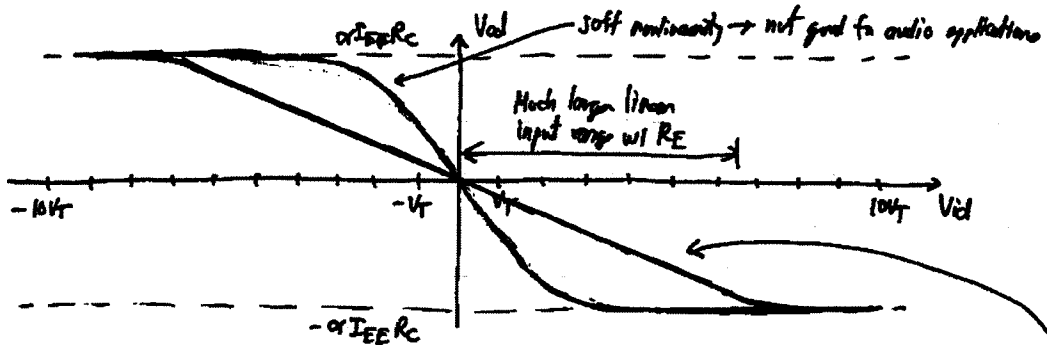 αI_EE R_C
Vod
soft nonlinearity → not good for audio applications
Much larger linear
input range w/ R_E
-10V_T
-V_T
V_T
10V_T
Vid
-αI_EE R_C